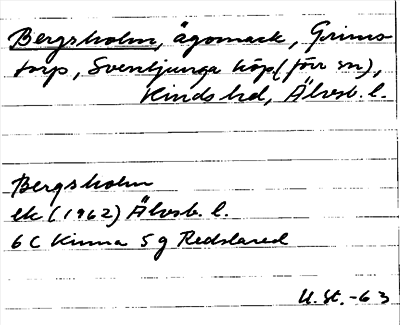 Bergsholm, ägomark, Grims-
torp, Svenljunga köp (förr sn),
Kinds hd, Älvsb. l.
Bergsholm
ek (1962) Älvsb. l.
6 C Kinna 5 g Redslared
U. St. -63